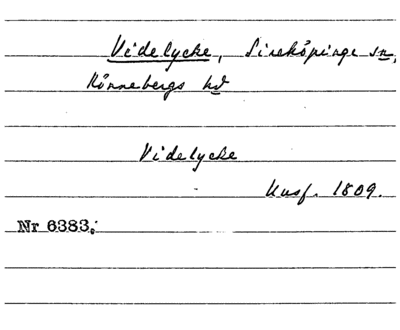 Videlycke, Sireköpinge sn,
Rönnebergs hd
Videlycke
Husf. 1809.
Nr 6383.